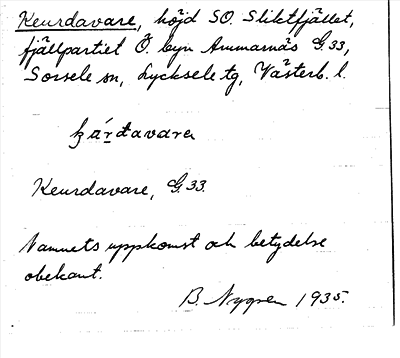 Keurdavare, höjd SO. Sliktfjället,
fjällpartiet Ö. byn Ammarnäs G.33,
Sorsele sn, Lycksele tg, Västerb. l.
Keurdavare, G.33.
Namnets uppkomst och betydelse
obekant.
B. Nygren 1935.